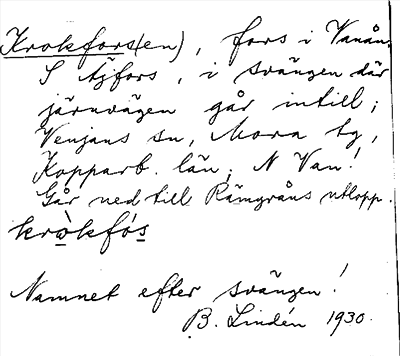 Krokfors(en), fors i Vanån.
S Åjfors, i svängen där
järnvägen går intill;
Venjans sn, Mora tg,
Kopparb. län; N Van!
Går ned till Rämgråns utlopp.
kròkfós
Namnet efter svängen!
B. Lindén 1930.